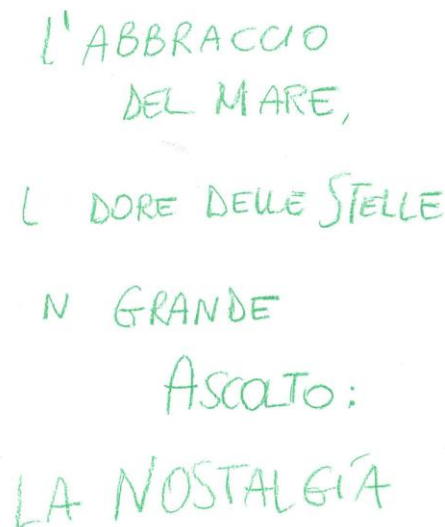 L'ABBRACCIO
DEL MARE,
L DORE DELLE STELLE
N GRANDE
ASCOLTO:
LA NOSTALGÌA